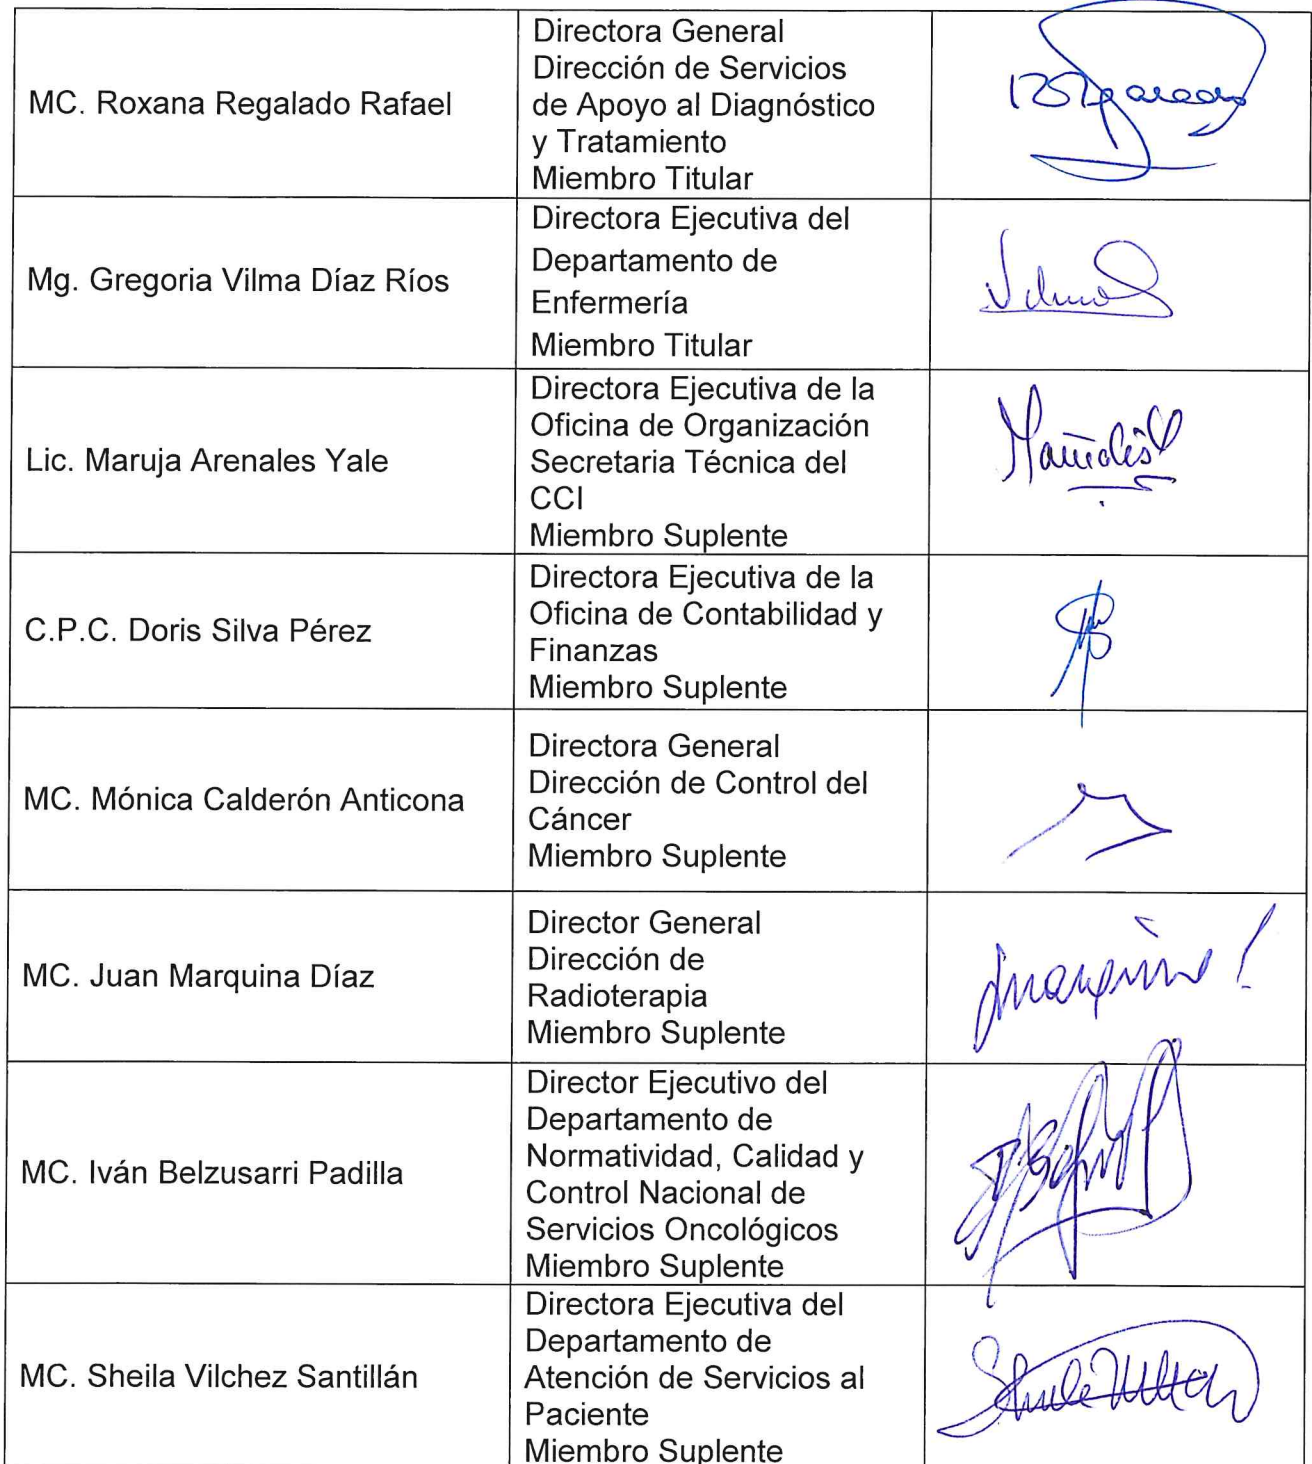 MC. Roxana Regalado Rafael
Directora General
Dirección de Servicios
de Apoyo al Diagnóstico
y Tratamiento
Miembro Titular
Mg. Gregoria Vilma Díaz Ríos
Directora Ejecutiva del
Departamento de
Enfermería
Miembro Titular
Lic. Maruja Arenales Yale
Directora Ejecutiva de la
Oficina de Organización
Secretaria Técnica del
CCI
Miembro Suplente
C.P.C. Doris Silva Pérez
Directora Ejecutiva de la
Oficina de Contabilidad y
Finanzas
Miembro Suplente
MC. Mónica Calderón Anticona
Directora General
Dirección de Control del
Cáncer
Miembro Suplente
MC. Juan Marquina Díaz
Director General
Dirección de
Radioterapia
Miembro Suplente
MC. Iván Belzusarri Padilla
Director Ejecutivo del
Departamento de
Normatividad, Calidad y
Control Nacional de
Servicios Oncológicos
Miembro Suplente
MC. Sheila Vilchez Santillán
Directora Ejecutiva del
Departamento de
Atención de Servicios al
Paciente
Miembro Suplente